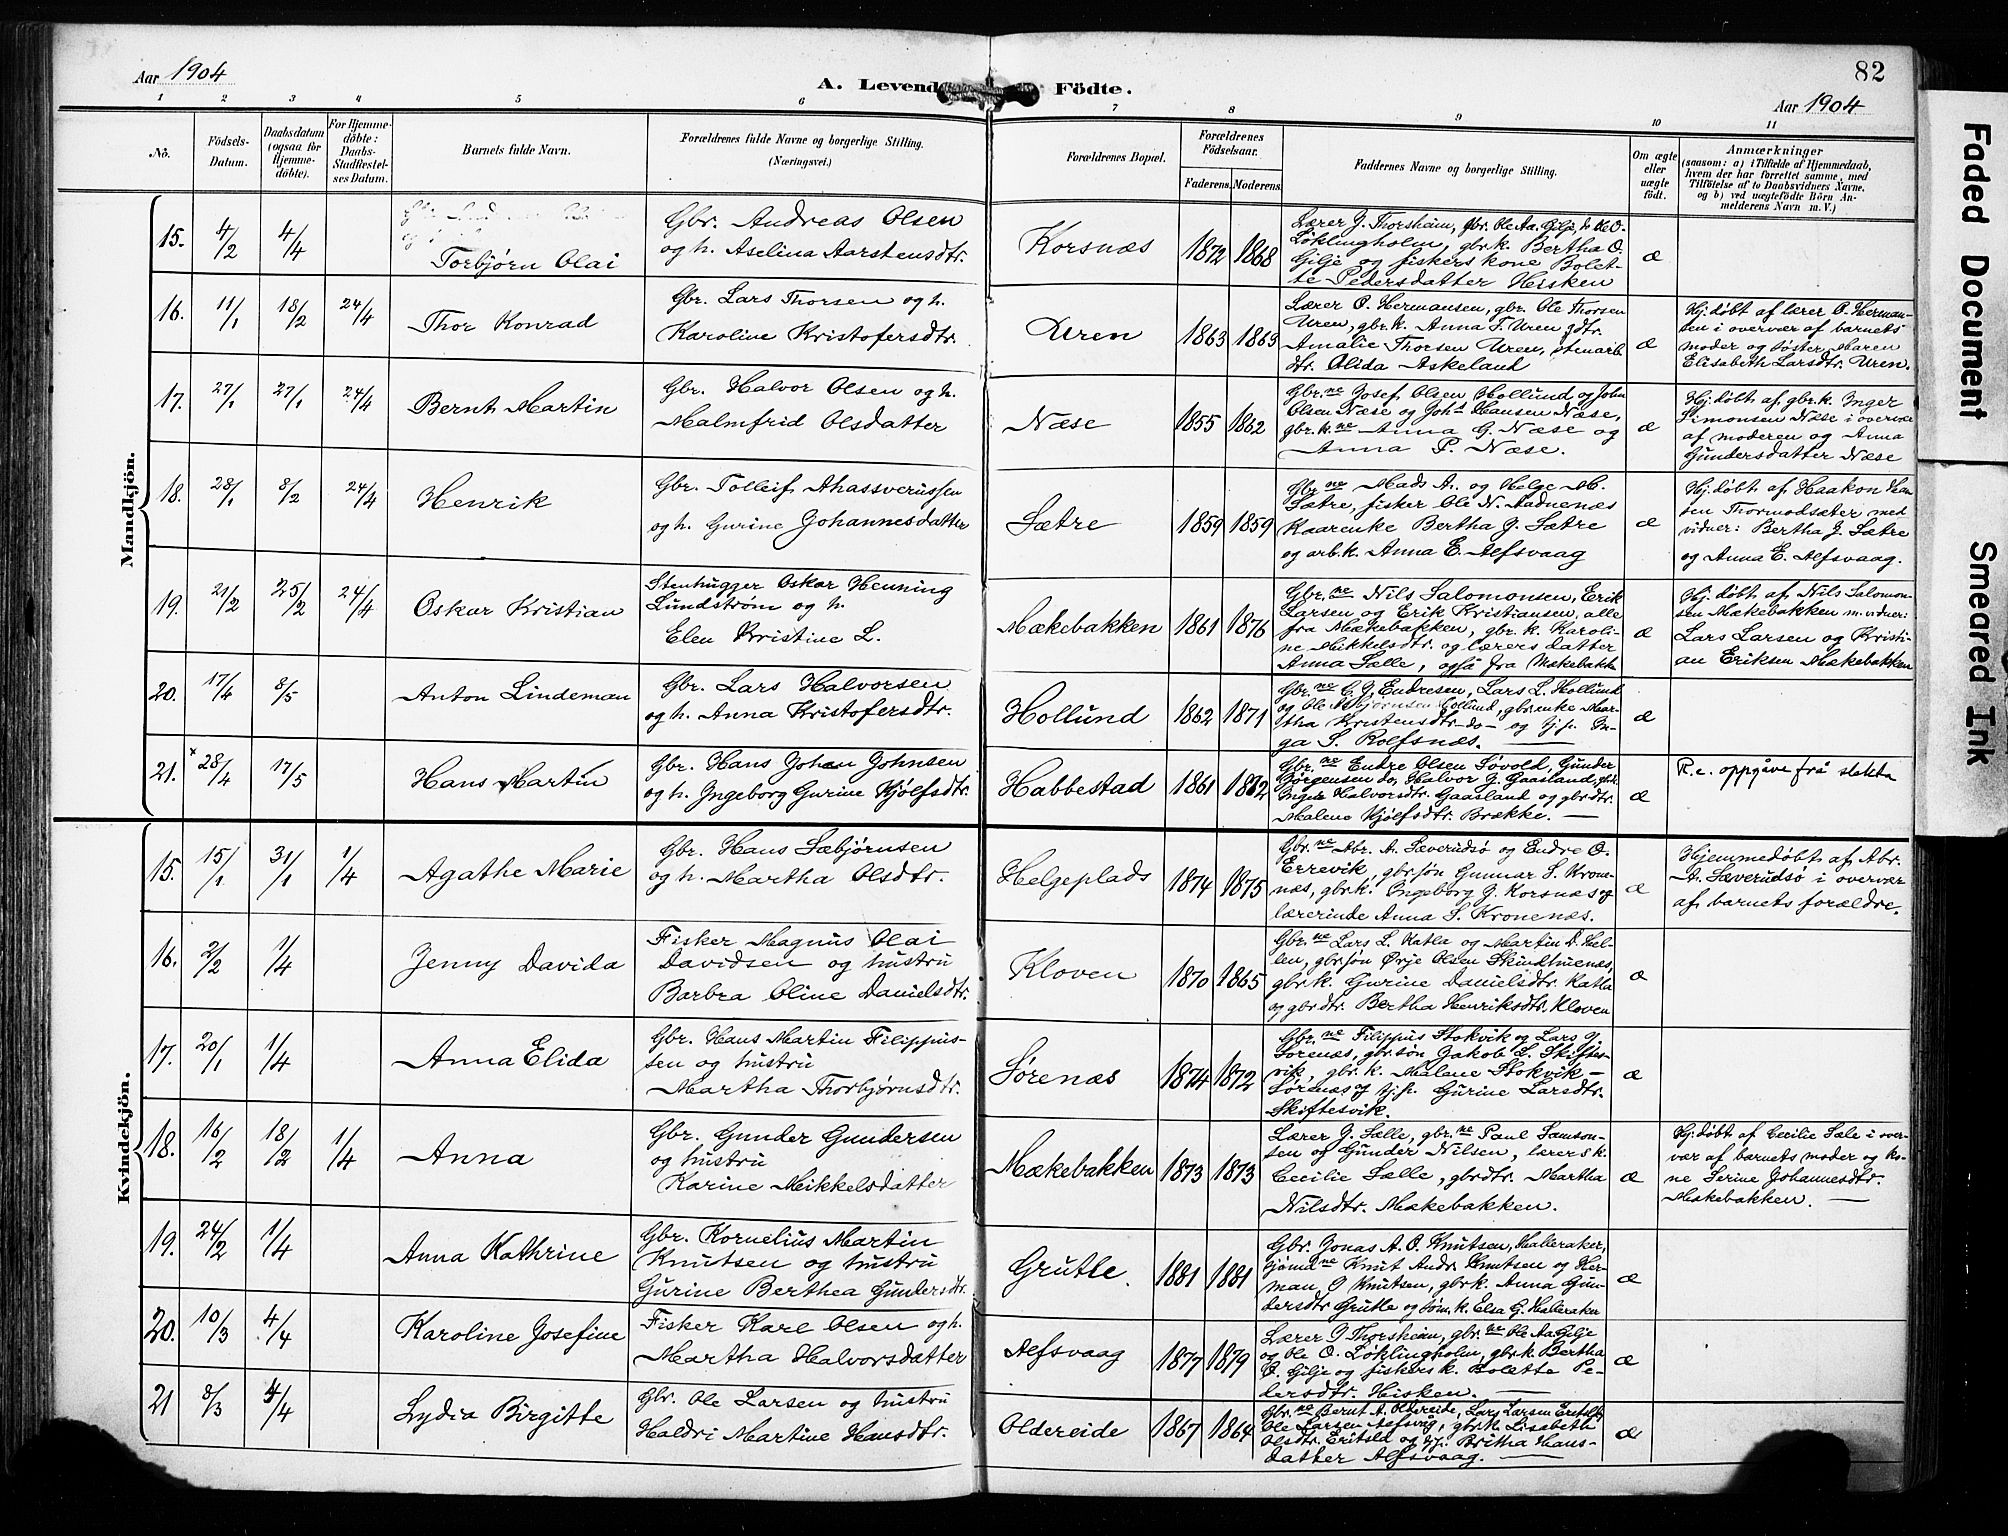 Aar 1904
A. Levend Födte.
82
Aar 1904
1 2 3 4 5 6 7 8 9 10 11
No.
Födsels-Datum.
Daabsdatum (ogsaa for Hjemme-döbte).
For Hjemme-döbte: Daabs-Stadfæstel-ses Datum.
Barnets fulde Navn.
Forældrenes fulde Navne og borgerlige Stilling. (Næringsvei.)
Forældrenes Bopæl.
Forældrenes Födselsaar.
Faderens. Moderens.
Faddernes Navne og borgerlige Stilling.
Om ægte eller uægte födt.
Anmærkninger
(saasom: a) i Tilfælde af Hjemmedaab, hvem der har forrettet samme, med Tilföielse af to Daabsvidners Navne, og b) ved uægtefödte Börn An-melderens Navn m. V.)
Mandkjön.
15. 4/2 4/4
Torbjørn Olai
Gbr. Andreas Olsen
og h. Aselina Aarstensdtr.
Korsnæs 1872 1868
Lærer J. Thorsheim, gbr. Ole Aa. Gilje, Ole O.
Løklingholm, gbr.k. Bertha O
Gilje og fiskers kone Bolet-
te Pedersdatter Hisken
æ
16. 11/1 18/2 24/4
Thor Konrad
Gbr. Lars Thorsen og h.
Karoline Kristofersdtr.
Uren 1863 1863
Lærer O. Hermansen, gbr. Ole Thorsen
Uren, gbr.k. Anna T. Uren gdtr.
Amalie Thorsen Uren, stenarb
dtr. Olida Askeland
æ
Hj.døbt af lærer O. Herman-
sen i overvær af barnets
moder og søster Maren
Elisabeth Larsdtr. Uren.
17. 27/1 27/1 24/4
Bernt Martin
Gbr. Halvor Olsen og h.
Malmfrid Olsdatter
Næse 1855 1862
Gbr.ne Josef Olsen Hollund og John
Olsen Næse og Johs Hansen Næse,
gbr.k.ne Anna G. Næse og
Anna P. Næse.
æ
Hj.døbt af gbr.k. Inger
Simonsen Næse i overvær
af moderen og Anna
Gundersdatter Næse
18. 28/1 8/2 24/4
Henrik
Gbr. Tolleif Ahassverussen
og h. Gurine Johannesdatter
Sætre 1859 1859
Gbr.ne Mads A. og Helge M.
Sætre, fisker Ole N. Aadnenæs
Kaarenke Bertha J. Sætre
og arb.k. Anna E. Alfsvaag
æ
Hj.døbt af Haakon Han
sen Thormodsæter med
vidner: Bertha J. Sætre
og Anna E. Alfsvaag.
19. 21/2 25/2 24/4
Oskar Kristian
Stenhugger Oskar Henning
Lundstrøm og h.
Elen Kristine L.
Mækebakken 1861 1876
Gbr.ne Nils Salomonsen, Erik
Larsen og Erik Kristiansen, alle
fra Mækebakken, gbr.k. Karoli-
ne Mikkelsdtr. og lærers datter
Anna Sælle, også fra Mækebakk
æ
Hj.døbt af Nils Salomon-
sen Mækebakken m. vidner:
Lars Larsen og Kristi-
an Eriksen Mækebakken
20. 17/4 8/5
Anton Lindeman
Gbr. Lars Halvorsen
og h. Anna Kristofersdtr.
Hollund 1862 1871
Gbr.ne C. J. Endresen, Lars L. Hollund
og Ole Asbjørnsen Hollund, gbr.enke Mar-
tha Kristensdtr -do- og tj.p. In-
ga S. Rolfsnæs.
æ
21. x 28/4 17/5
Hans Martin
Gbr. Hans Johan Johnsen
og h. Ingeborg Gurine Kjølfsdtr.
Habbestad 1861 1862
Gbr.ne Endre Olsen Søvold, Gunder
Børgensen do, Halvor J. Gaasland, gbr.k.
Inger Halvorsdtr. Gaasland og gbr.dtr.
Malene Kjølfsdtr. Brække.
æ
R.e. oppgåve frå slekta
Kvindekjön.
15. 15/1 31/1 1/4
Agathe Marie
Gbr. Hans Sæbjørnsen
og h. Martha Olsdtr.
Helgeplads 1874 1875
Gbr.ne Abr. A. Sæverudsø og Endre O.
Errevik, gbr.søn Gunnar S. Krone-
næs, gbr.k. Ingeborg J. Korsnæs og
lærerinde Anna S. Kronenæs.
æ
Hjemmedøbt af Abr.
A. Sæverudsø i overvær
af barnets forældre.
16. 2/2 1/4
Jenny Davida
Fisker Magnus Olai
Davidsen og hustru
Barbra Oline Danielsdtr.
Kloven 1870 1865
Gbr.ne Lars L. Katla og Martin D. Hel-
len, gbr.søn Ørje Olsen Skindhuenæs,
gbr.k. Gurine Danielsdtr. Katla
og gbr.dtr. Bertha Henriksdtr. Kloven
æ
17. 20/1 1/4
Anna Elida
Gbr. Hans Martin Filippus-
sen og hustru
Martha Thorbjørnsdtr.
Sørenæs 1874 1872
Gbr.ne Filippus Stokvik og Lars J.
Sørenæs, gbr.søn Jakob L. Skiftes-
vik, gbr.k. Malene Stokvik -
Sørenæs og tj.p. Gurine Larsdtr.
Skiftesvik.
æ
18. 16/2 18/2 1/4
Anna
Gbr. Gunder Gundersen
og hustru
Karine Mikkelsdatter
Mækebakken 1873 1873
Lærer J. Sælle, gbr.ne Paul Samson-
sen og Gunder Nilsen, lærers k.
Cecilie Sælle, gbr.dtr. Martha
Nilsdtr. Mækebakken.
æ
Hj.døbt af Cecilie Sæle i over-
vær af barnets moder og ko-
ne Serine Johannesdtr.
Mækebakken.
19. 24/2 1/4
Anna Kathrine
Gbr. Kornelius Martin
Knutsen og hustru
Gurine Berthea Gundersdtr.
Grutle. 1881 1881
Gbr. Jonas A. O. Knutsen, Halleraker,
sjømdne Knut Andr. Knutsen og Her-
man O Knutsen, gbr.k. Anna Gun-
dersdtr Grutle og søm.k. Elsa G. Halleraker
æ
20. 10/3 4/4
Karoline Josefine
Fisker Karl Olsen og h.
Martha Halvorsdatter
Alfsvaag 1877 1879
Lærer J Thorsheim, gbr.ne Ole Aa Gilje
og Ole O. Løklingholm, gbr.k. Bertha
O. Gilje og fiskers k. Bolette Pe-
dersdtr. Hisken.
æ
21 8/3 4/4
Lydia Birgitte
Gbr. Ole Larsen og hustru
Haldri Martine Hansdtr.
Oldereide 1867 1864
Gbr.ne Bernt A. Oldereide, Lars Larsen Eritsld,
Ole Larsen Alfsvåg, gbr.k. Lisabeth
Olsdtr. Eritsld og tj.p. Britha Hans-
datter Alfsvaag.
æ
Faded Document
Smeared Ink